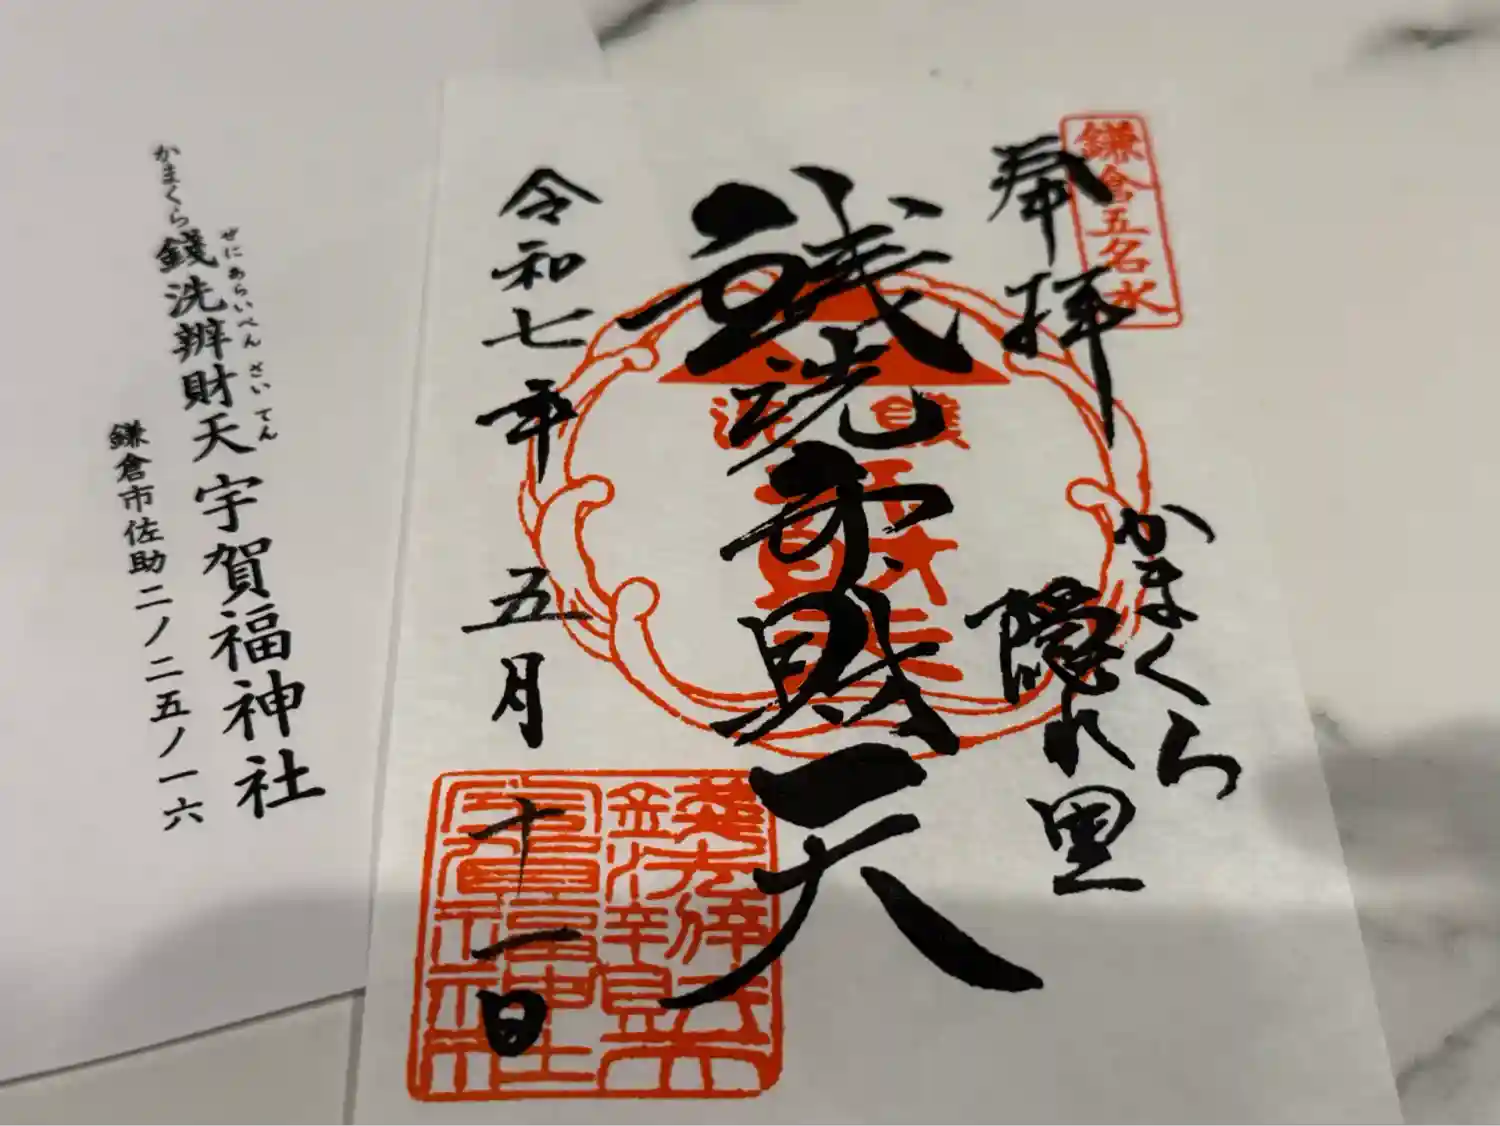 鎌倉五名水
奉拝
かまくら
隠れ里
銭洗弁財天
銭洗
令和七年五月十一日
宇賀福神社
せにあらいべんざいてん
かまくら銭洗辨財天宇賀福神社
鎌倉市佐助二ノ二五ノ一六